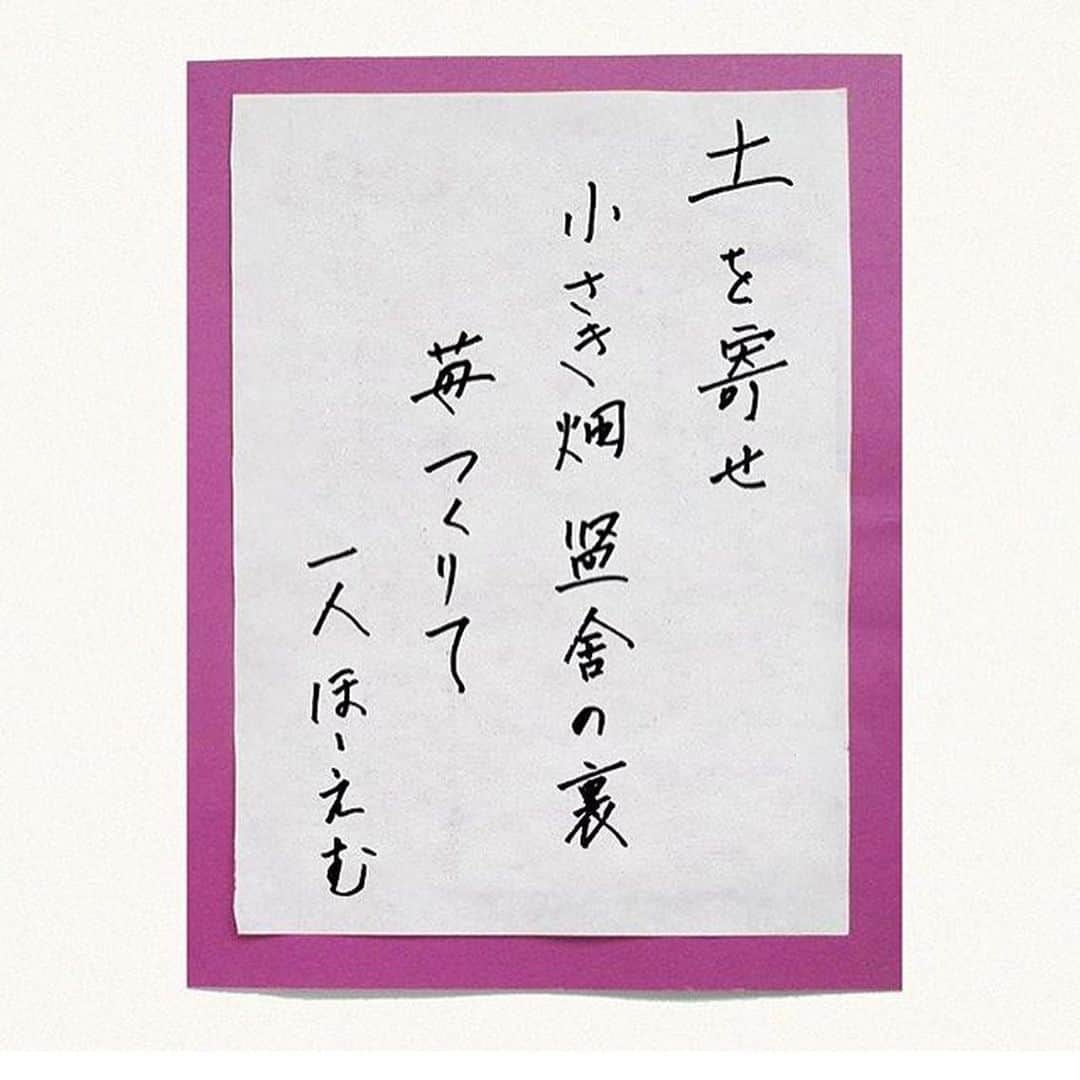 土を寄せ
小さき畑監舎の裏
苺つくりて
一人ほゝえむ